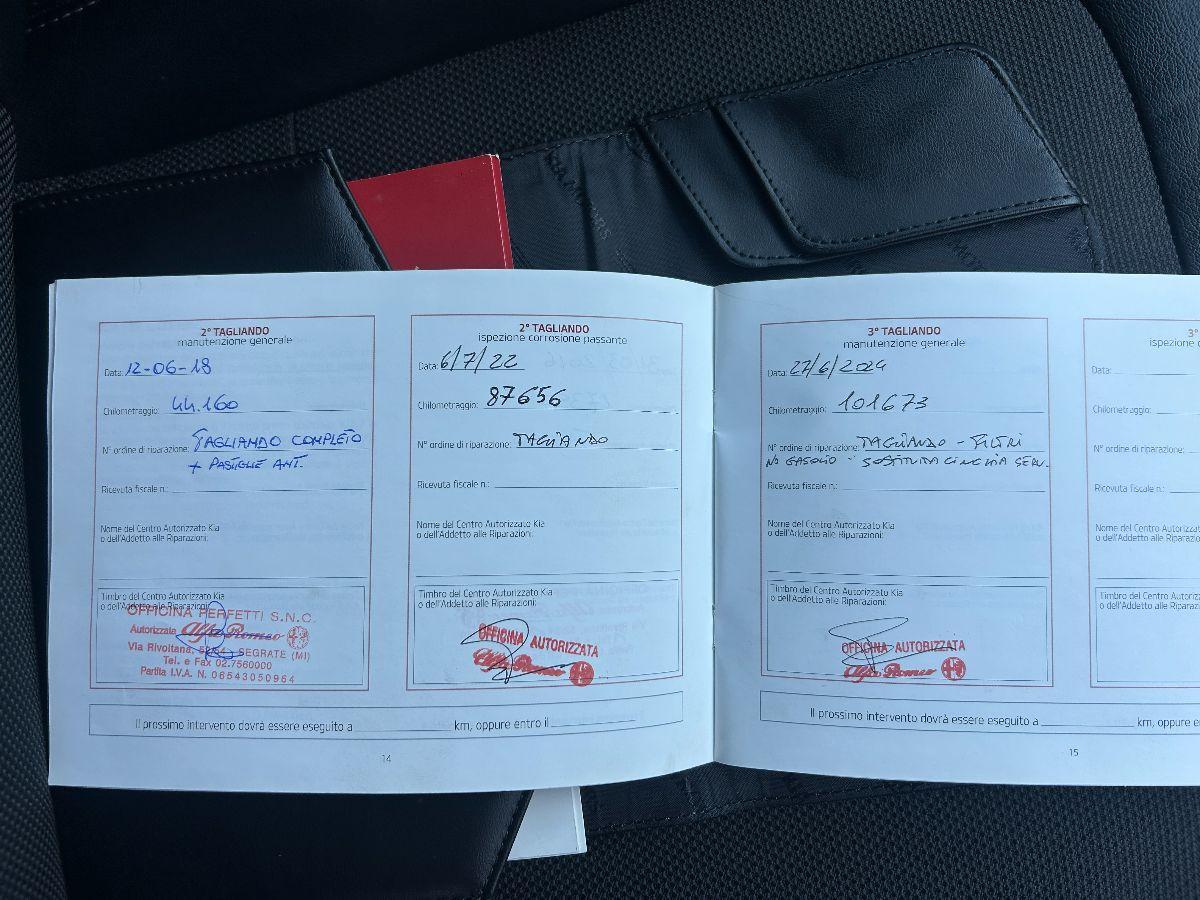 2° TAGLIANDO
manutenzione generale
Data: 12-06-18
Chilometraggio: 44.160
N° ordine di riparazione: TAGLIANDO COMPLETO
+ PASTIGLIE ANT.
Ricevuta fiscale n.:
Nome del Centro Autorizzato Kia
o dell'Addetto alle Riparazioni:
Timbro del Centro Autorizzato Kia
o dell'Addetto alle Riparazioni:
OFFICINA PERFETTI S.N.C.
Autorizzata Alfa Romeo
Via Rivoltana, SEGRATE (MI)
Tel. e Fax 02.7560000
Partita I.V.A. N. 06543050964
2° TAGLIANDO
ispezione corrosione passante
Data: 6/7/22
Chilometraggio: 87656
N° ordine di riparazione: TAGLIANDO
Ricevuta fiscale n.:
Nome del Centro Autorizzato Kia
o dell'Addetto alle Riparazioni:
Timbro del Centro Autorizzato Kia
o dell'Addetto alle Riparazioni:
OFFICINA AUTORIZZATA
Alfa Romeo
Il prossimo intervento dovrà essere eseguito a km, oppure entro il
14
3° TAGLIANDO
manutenzione generale
Data: 27/6/2024
Chilometraggio: 101673
N° ordine di riparazione: TAGLIANDO - FILTRI
NO GASOLIO - SOSTITUITA CINGHIA SERV.
Ricevuta fiscale n.:
Nome del Centro Autorizzato Kia
o dell'Addetto alle Riparazioni:
Timbro del Centro Autorizzato Kia
o dell'Addetto alle Riparazioni:
OFFICINA AUTORIZZATA
Alfa Romeo
3°
ispezione
Data:
Chilometraggio:
N° ordine di riparazione:
Ricevuta fiscale n.:
Nome del Centro Autorizzat
o dell'Addetto alle Riparazio
Timbro del Centro Autorizz
o dell'Addetto alle Riparazio
Il prossimo intervento dovrà essere eseguito a km, oppure e
15